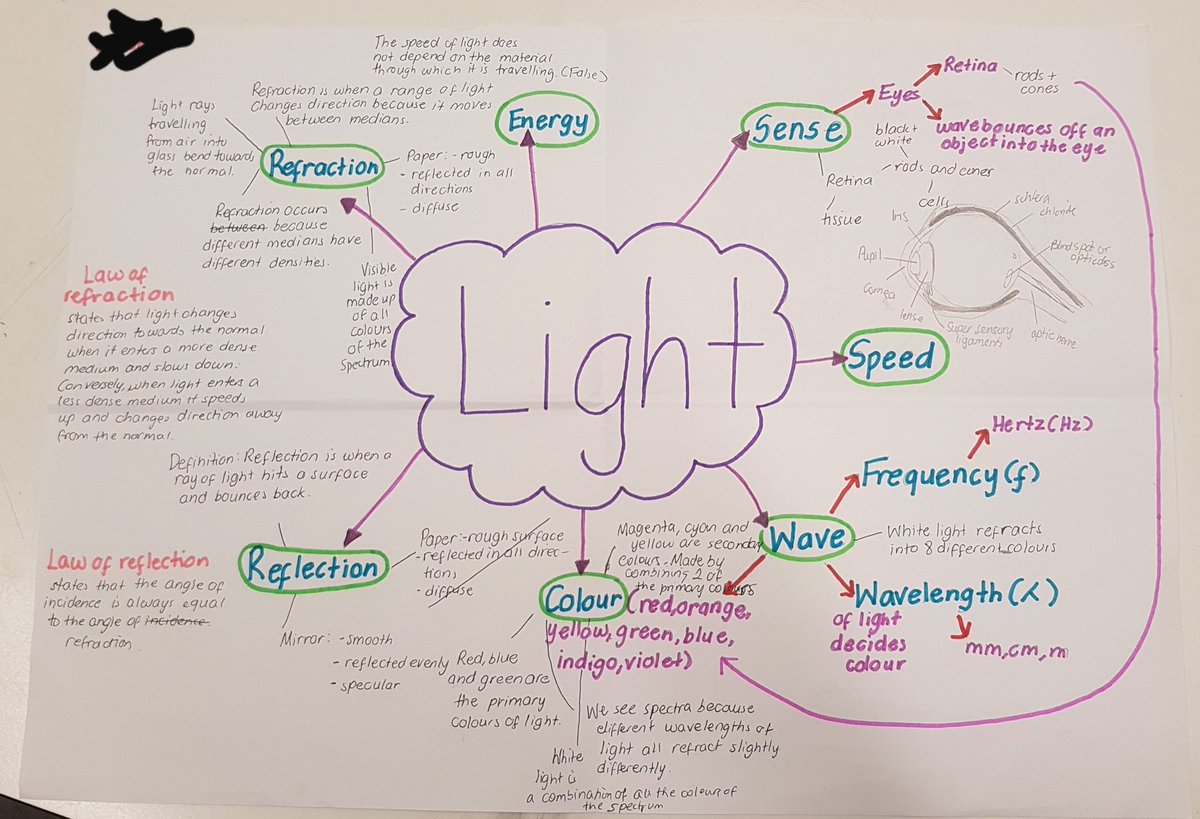 The speed of light does
not depend on the material
through which it is travelling. (False)
Energy
Refraction is when a range of light
changes direction because it moves
between medians.
Light rays
travelling
from air into
glass bend towards
the normal.
Refraction
Paper: - rough
- reflected in all
directions
- diffuse
Refraction occurs
between because
different medians have
different densities.
Visible
light is
made up
of all
colours
of the
Spectrum
Law of
refraction
states that light changes
direction towards the normal
when it enters a more dense
medium and slows down.
Conversely, when light enters a
less dense medium it speeds
up and changes direction away
from the normal.
Light
Sense
Eyes
Retina
rods +
cones
wave bounces off an
object into the eye
black +
white
rods and cones
cells
Retina
tissue
Iris
schlera
chloride
Pupil
Blind spot or
optic
Cornea
lense
Super sensory
ligaments
optic nerve
Speed
Definition: Reflection is when a
ray of light hits a surface
and bounces back.
Reflection
Law of reflection
states that the angle of
incidence is always equal
to the angle of incidence
refraction.
Paper: - rough surface
- reflected in all direc-
tions
- diffuse
Mirror: - smooth
- reflected evenly
- specular
Magenta, cyan and
yellow are secondary
colours. Made by
combining 2 of
the primary colours
Colour (red, orange,
yellow, green, blue,
indigo, violet)
Red, blue
and green are
the primary
colours of light.
We see spectra because
different wavelengths of
light all refract slightly
differently.
White
light is
a combination of all the colours of
the spectrum
Wave
Frequency (f)
Hertz (Hz)
White light refracts
into 8 different colours
Wavelength (λ)
of light
decides
colour
mm, cm, m